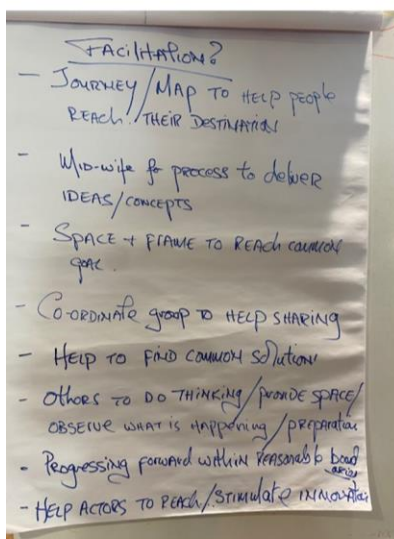 FACILITATION?
- JOURNEY/MAP TO HELP people
REACH THEIR DESTINATION
- MID-wife for process to deliver
IDEAS/CONCEPTS
- SPACE + FRAME TO REACH COMMON
goal.
- CO-ORDINATE group TO HELP SHARING
- HELP TO FIND COMMON SOLUTION
- OTHERS TO DO THINKING/PROVIDE SPACE/
OBSERVE WHAT IS HAPPENING/PREPARATION
- Progressing forward within REASONABLE bound
aries
- HELP ACTORS TO REACH/STIMULATE INNOVATION